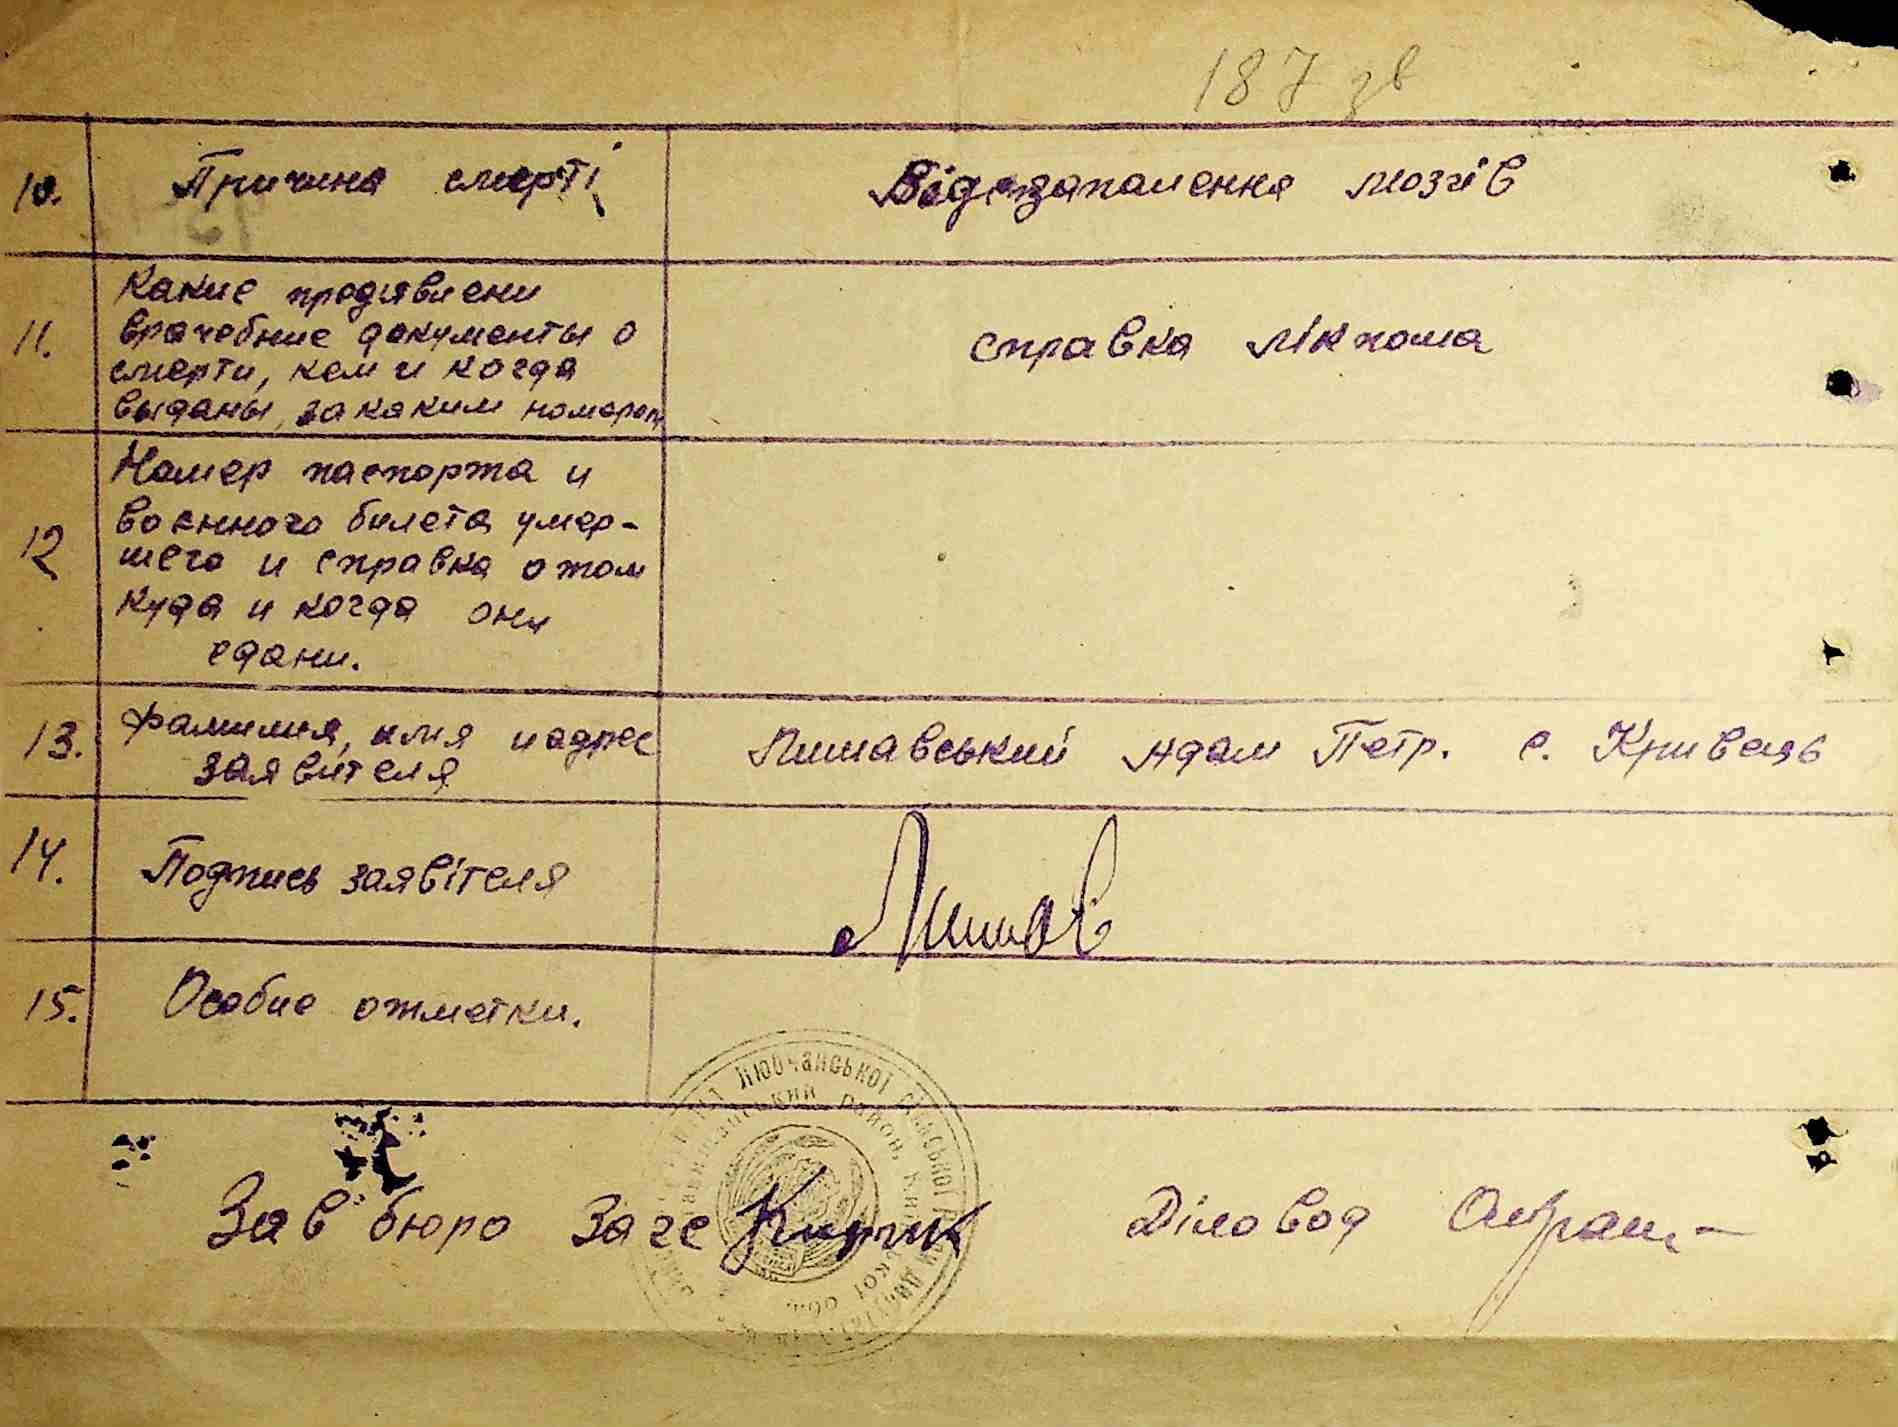 187 зв
10. Причина смерті Від запалення мозгів
11. Какие предявлени
врачебние документы о
смерти, кем и когда
выданы, за каким номером
справка лікпома
12 Номер паспорта и
военного билета умер-
шего и справка о том
куда и когда они
сдани.
13. фамилия, имя и адрес
заявителя
Лишавський Адам Петр. с.
14. Подпись заявітеля
Лишав
15. Особие отметки.
Любчанської сільської
район, Ки
Зав бюро Загс Діловод